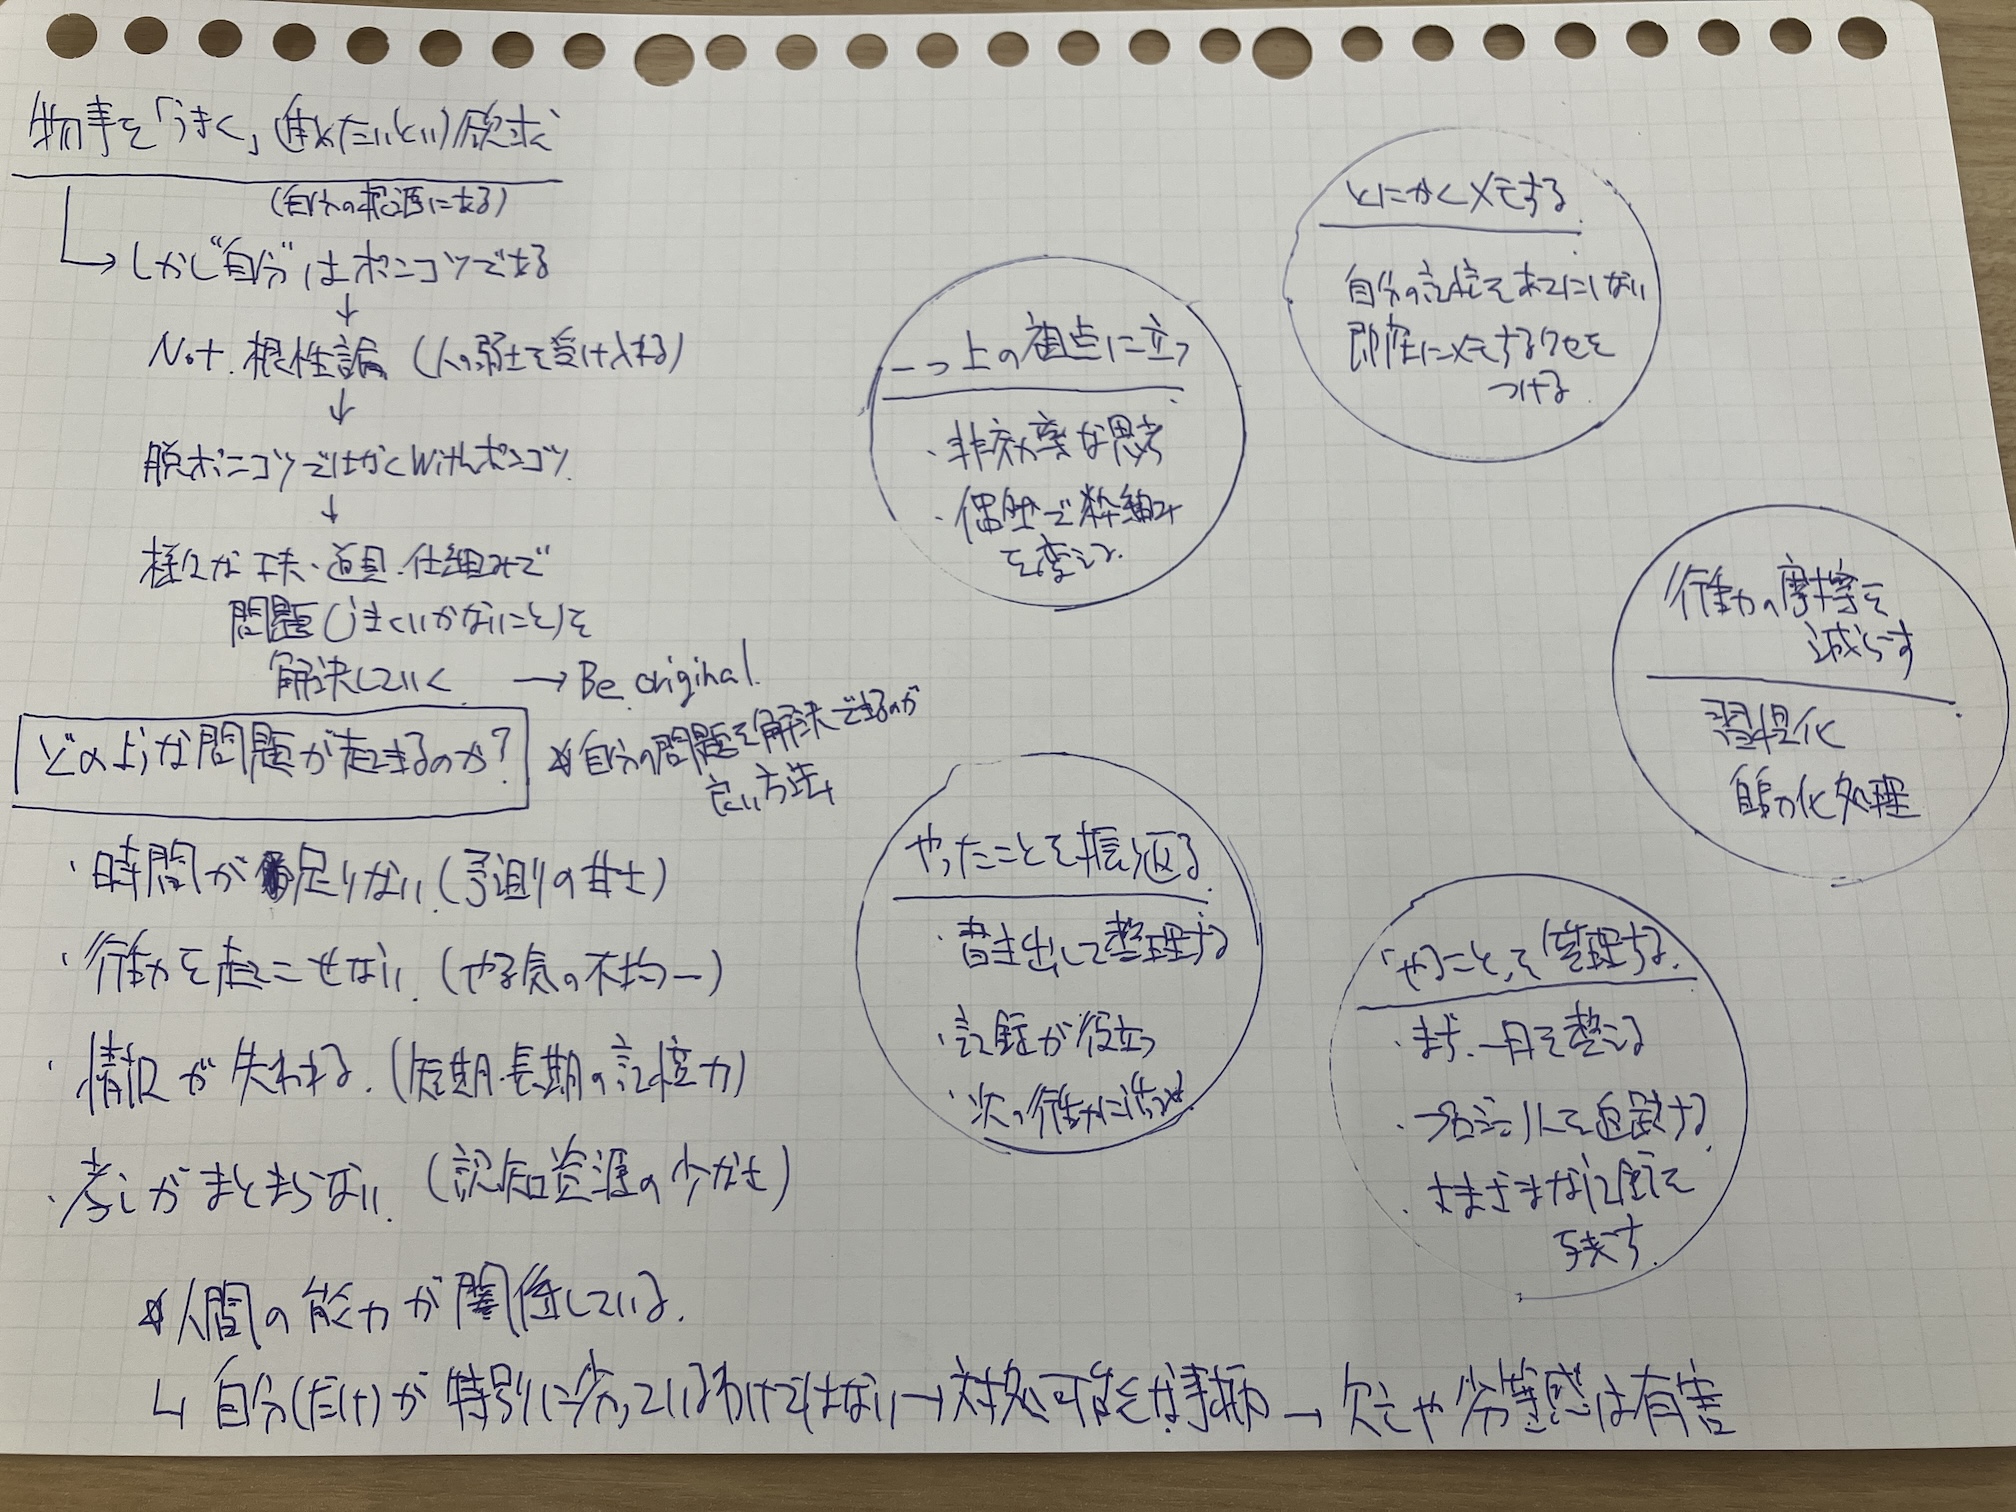 物事を「うまく」進めたいという欲求
(自分の根源にある)
しかし“自分”はポンコツである
↓
Not 根性論 (人の弱さを受け入れる)
↓
脱ポンコツではなくWithポンコツ
↓
様々な工夫・道具・仕組みで
問題(うまくいかないこと)を
解決していく → Be original.
☆自分の問題を解決できるのが
良い方法
どのような問題が起きるのか?
・時間が足りない (予測の甘さ)
・行動を起こせない (やる気の不均一)
・情報が失われる (短期・長期の記憶力)
・考えがまとまらない (認知資源の少なさ)
☆人間の能力が関係している.
↳ 自分(だけ)が特別に劣っているわけではない→対処可能な事柄→ 欠乏や劣等感は有害
一つ上の視点に立つ
・非効率な思考
・俯瞰で枠組み
を変える.
とにかくメモする
自分の記憶をあてにしない
即座にメモするクセを
つける
行動の摩擦を
減らす
習慣化
自動化処理
やったことを振り返る
・書き出して整理する
・記録が役立つ
・次の行動に活かせ
「やること」を管理する.
・まず、一日を整える
・プロジェクトを追跡する
・さまざまな記録を
残す.